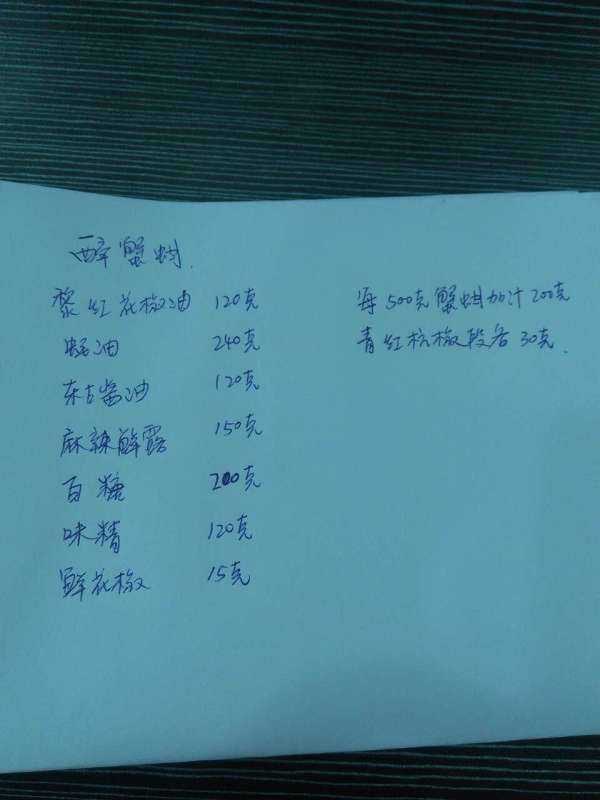 醉蟹钳
黎红花椒油 120克
蚝油 240克
东古酱油 120克
麻辣鲜露 150克
白糖 200克
味精 120克
鲜花椒 15克
每500克蟹钳加汁200克
青红杭椒段各30克.